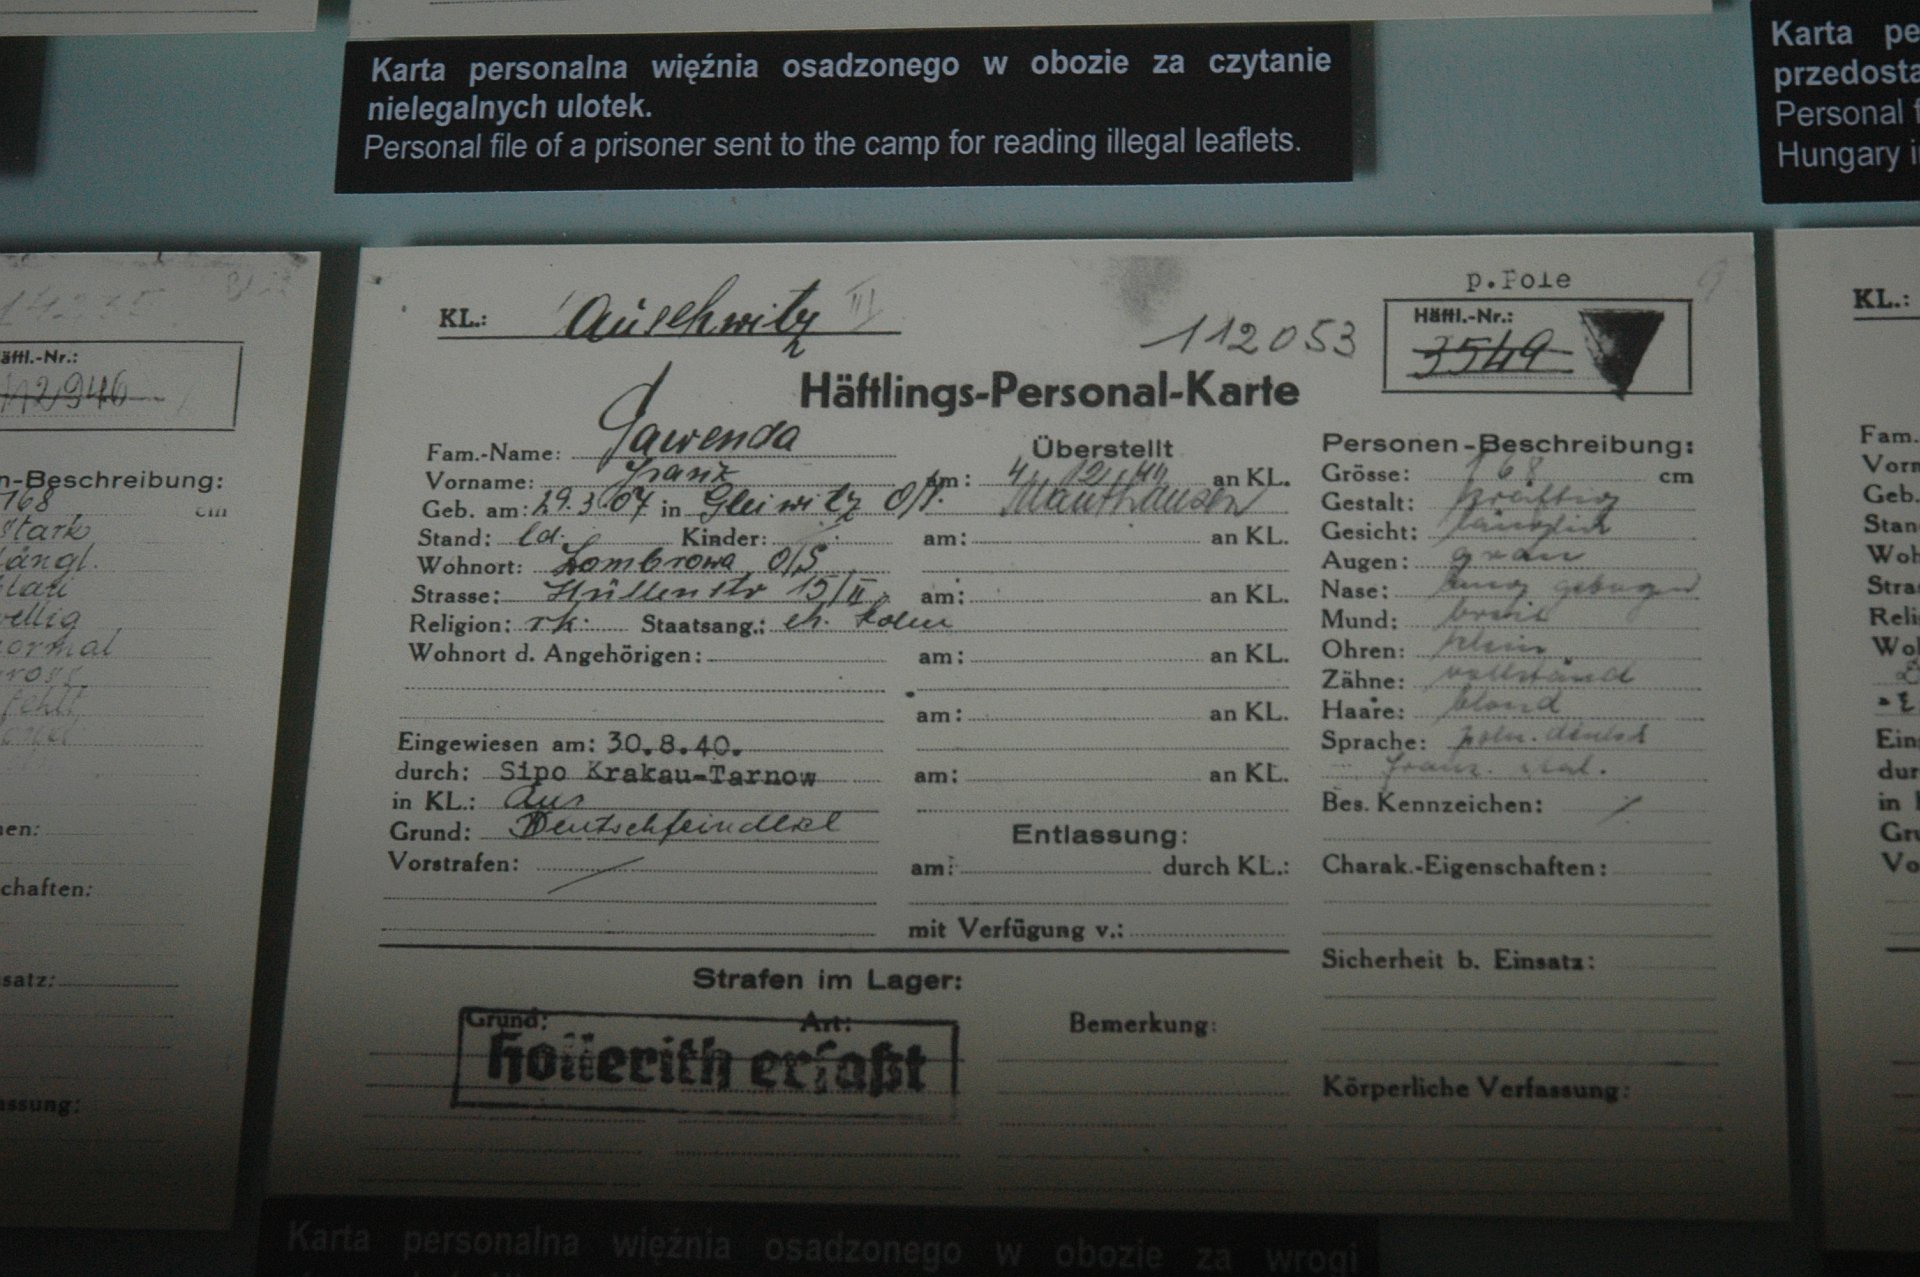 Karta personalna więźnia osadzonego w obozie za czytanie
nielegalnych ulotek.
Personal file of a prisoner sent to the camp for reading illegal leaflets.
Karta pe
przedosta
Personal f
Hungary i
KL.: Auschwitz III
112053
p.Pole
Häftl.-Nr.:
3549
Häftlings-Personal-Karte
Fam.-Name: Gawenda
Vorname: Franz
Geb. am: 29.3.07 in Gleiwitz O/S.
Stand: ld. Kinder:
Wohnort: Dombrowa O/S
Strasse: Hüttenstr 15/II
Religion: rk. Staatsang.:
Wohnort d. Angehörigen:
Eingewiesen am: 30.8.40.
durch: Sipo Krakau-Tarnow
in KL.: Aus
Grund:
Vorstrafen:
Überstellt
am: 4 12 44 an KL.
Mauthausen
am: an KL.
am: an KL.
am: an KL.
am: an KL.
am: an KL.
Entlassung:
am: durch KL.:
mit Verfügung v.:
Personen-Beschreibung:
Grösse: 168 cm
Gestalt: kräftig
Gesicht: länglich
Augen: grau
Nase: lang gebogen
Mund: breit
Ohren: klein
Zähne: vollständ
Haare: blond
Sprache: poln. deutsch
franz. ital.
Bes. Kennzeichen:
Charak.-Eigenschaften:
Sicherheit b. Einsatz:
Körperliche Verfassung:
Strafen im Lager:
Grund: Art: Bemerkung:
Hollerith erfaßt
äftl.-Nr.:
12946
n-Beschreibung:
168 cm
stark
längl.
blau
wellig
normal
gross
fehlt
en:
chaften:
satz:
assung:
KL.:
Fam.
Vorn
Geb.
Stan
Woh
Stras
Reli
Wol
Ein
dur
in
Gr
Vo
Karta personalna więźnia osadzonego w obozie za wrogi